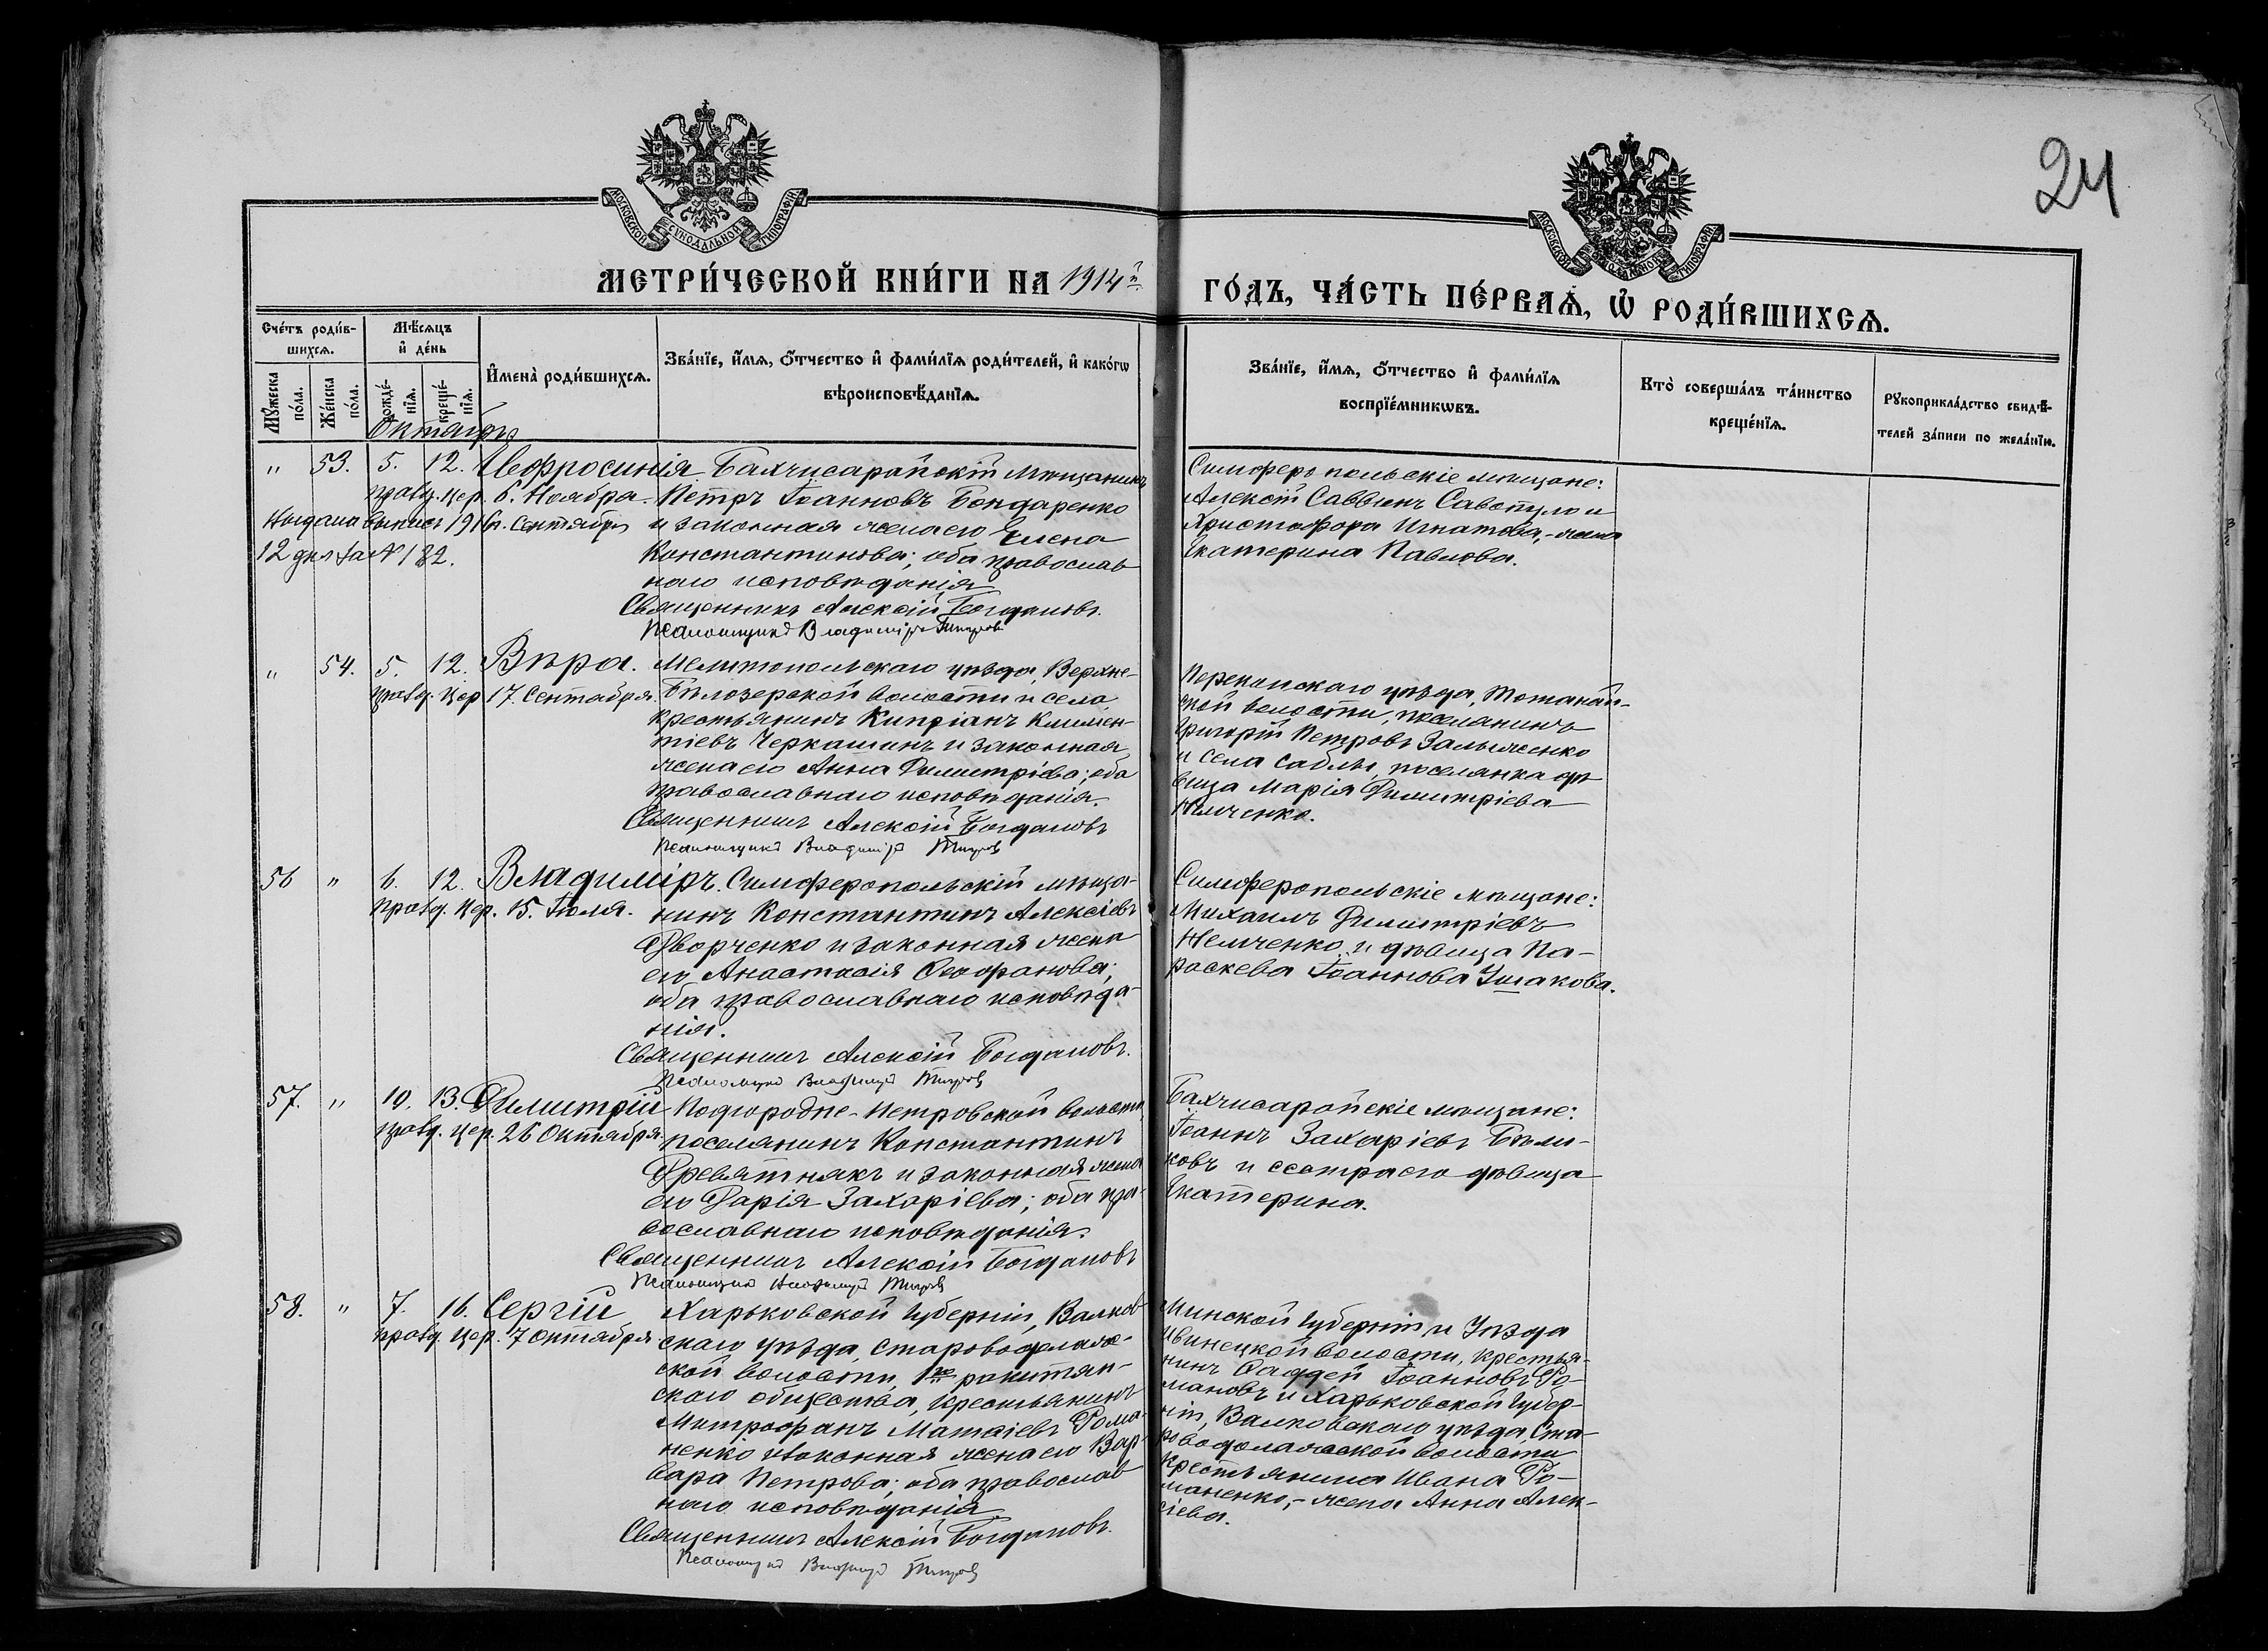 24
МОСКОВСКОЙ СУНОДАЛЬНОЙ ТИПОГРАФІИ
МОСКОВСКОЙ СУНОДАЛЬНОЙ ТИПОГРАФІИ
МЕТРИ́ЧЕСКОЙ КНИ́ГИ НА 1914й
ГО́ДЪ, ЧА́СТЬ ПЕ́РВАѦ, Ѽ РОДИ́ВШИХСѦ.
Сче́тъ роди́в-
шихсѧ.
Мꙋ́жеска по́ла.
Же́нска по́ла.
Мѣ́сяцъ
и҆ де́нь
рожде́-
нїѧ.
креще́-
нїѧ.
И҆мена̀ роди́вшихсѧ.
Зва́нїе, и҆́мѧ, ѻ҆́тчество и҆ фами́лїѧ роди́телей, и҆ како́гѡ
вѣроисповѣ́данїѧ.
Зва́нїе, и҆́мѧ, ѻ҆́тчество и҆ фами́лїѧ
воспрїе́мникѡвъ.
Кто̀ соверша́лъ та́инство
креще́нїѧ.
Рꙋкоприкла́дство свидѣ́-
телей за́писи по жела́нїю.
Октябрь
" 53. 5. 12. Евфросинія
празд. цер. 6. Ноября.
Выдана выпись 1916 г. Сентября
12 дня за № 182.
Бахчисарайскій мѣщанинъ
Петръ Іоанновъ Бондаренко
и законная жена его Елена
Константинова; оба православ
наго исповѣданія
Священникъ Алексій Богдановъ.
Псаломщикъ Владиміръ
Симферопольскіе мѣщане:
Алексѣй Саввинъ Савопуло и
Христофора Игнатова,- жена
Екатерина Павлова.
" 54. 5. 12. Вѣра.
празд. цер. 17. Сентября.
Мелитопольскаго уѣзда, Верхне-
Бѣлозерской волости и села
крестьянинъ Кипріанъ Климен-
тіевъ Черкашинъ и законная
жена его Анна Димитріева; оба
православнаго исповѣданія.
Священникъ Алексій Богдановъ
Псаломщикъ Владиміръ
Перекопскаго уѣзда,
ской волости, поселянинъ
Григорій Петровъ
и села Саблы, поселянка дѣ
вица Марія Димитріева
Немченко.
56 " 6. 12. Владиміръ.
празд. цер. 15. Іюля.
Симферопольскій мѣща-
нинъ Константинъ Алексіевъ
Дворченко и законная жена
его Анастасія Ѳеофанова;
оба православнаго исповѣда-
нія.
Священникъ Алексій Богдановъ.
Псаломщикъ Владиміръ
Симферопольскіе мѣщане:
Михаилъ Димитріевъ
Немченко и дѣвица Па-
раскева Іоаннова Ушакова.
57. " 10. 13. Димитрій
празд. цер. 26 Октября.
Подгородне-Петровской волости,
поселянинъ Константинъ
Древятнякъ и законная жена
его Дарія Захаріева; оба пра-
вославнаго исповѣданія.
Священникъ Алексій Богдановъ
Псаломщикъ Владиміръ
Бахчисарайскіе мѣщане:
Іоаннъ Захаріевъ Бѣли-
ковъ и сестра его дѣвица
Екатерина.
58. " 7. 16. Сергій
празд. цер. 7 Октября.
Харьковской губерніи, Валков-
скаго уѣзда, Староводолаж-
ской волости, 1го ракитян-
скаго общества, крестьянинъ
Митрофанъ Матѳіевъ Рома-
ненко и законная жена его Вар-
вара Петрова; оба православ
наго исповѣданія
Священникъ Алексій Богдановъ.
Псаломщикъ Владиміръ
Минской губерніи и Уѣзда
Ивинецкой волости, крестья-
нинъ Ѳаддей Іоанновъ Ро-
мановъ и Харьковской Губер-
ніи, Валковскаго уѣзда, Ста-
роводолажской волости
крестьянина Ивана Ро-
маненко,- жена Анна Алек-
сіева.